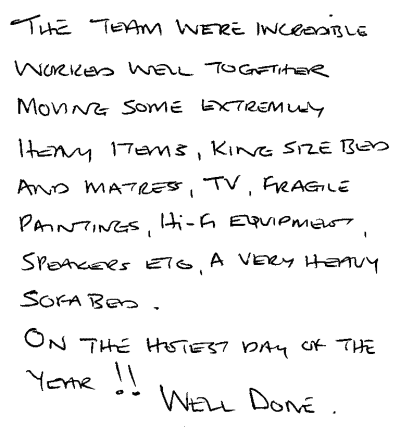 THE TEAM WERE INCREDIBLE
WORKED WELL TOGETHER
MOVING SOME EXTREMLY
HEAVY ITEMS, KING SIZE BED
AND MATRESS, TV, FRAGILE
PAINTINGS, Hi-Fi EQUIPMENT,
SPEAKERS ETC, A VERY HEAVY
SOFA BED.
ON THE HOTTEST DAY OF THE
YEAR !! WELL DONE.